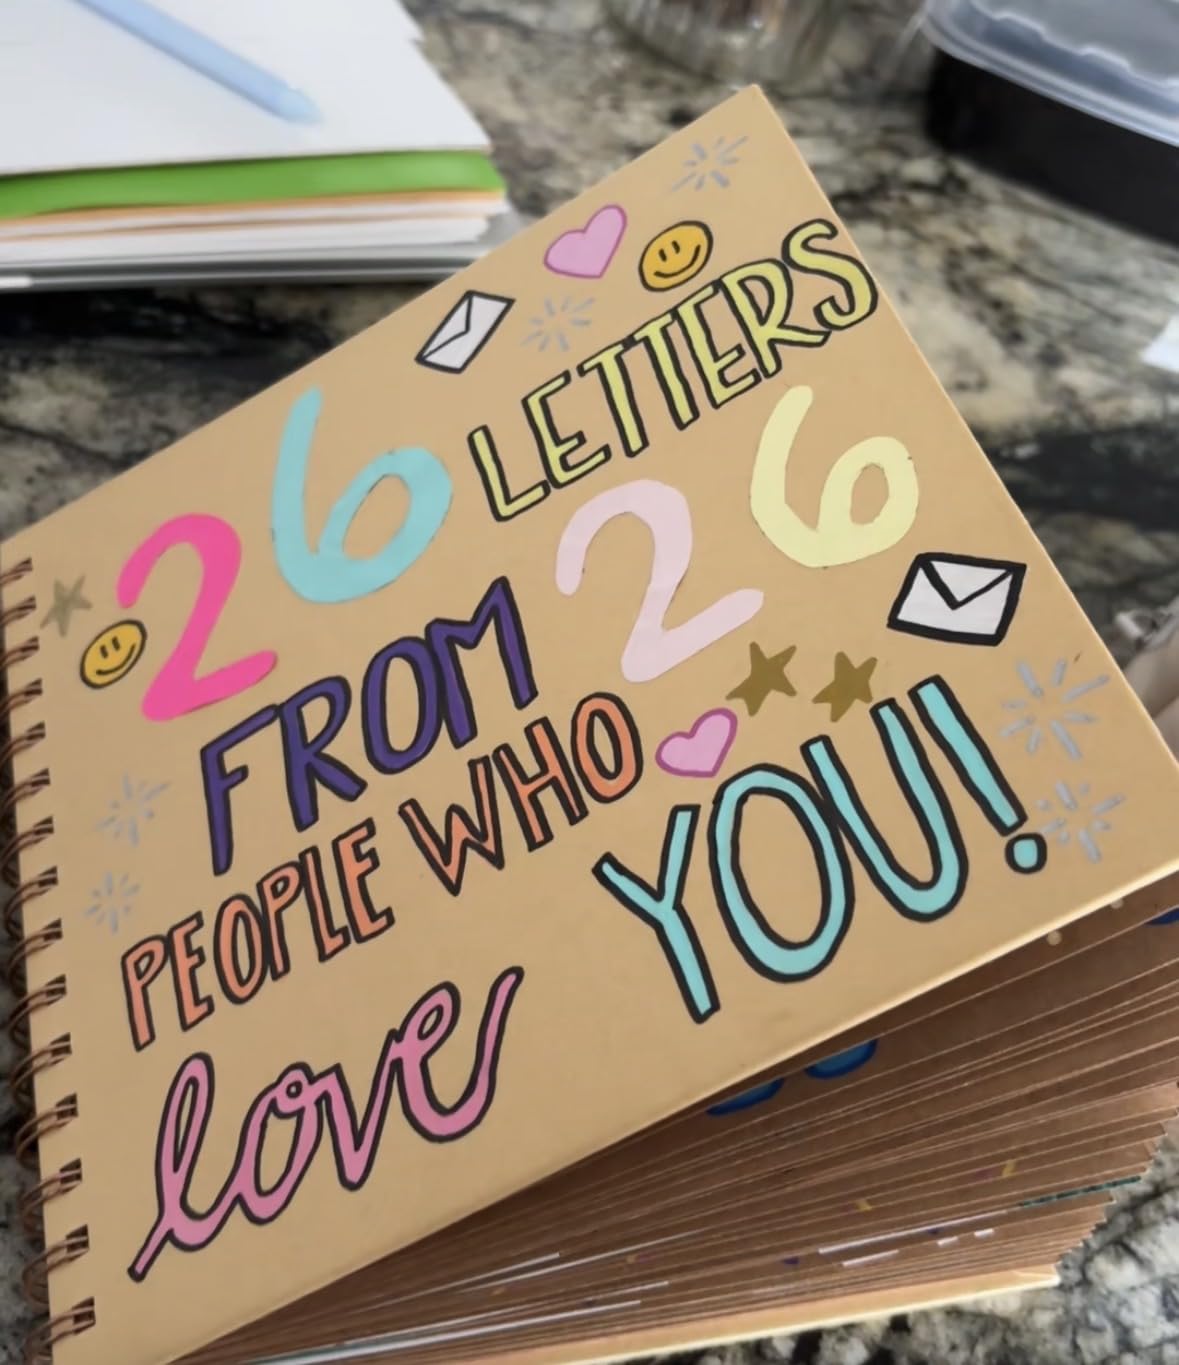 26 LETTERS
FROM 26
PEOPLE WHO
love YOU!